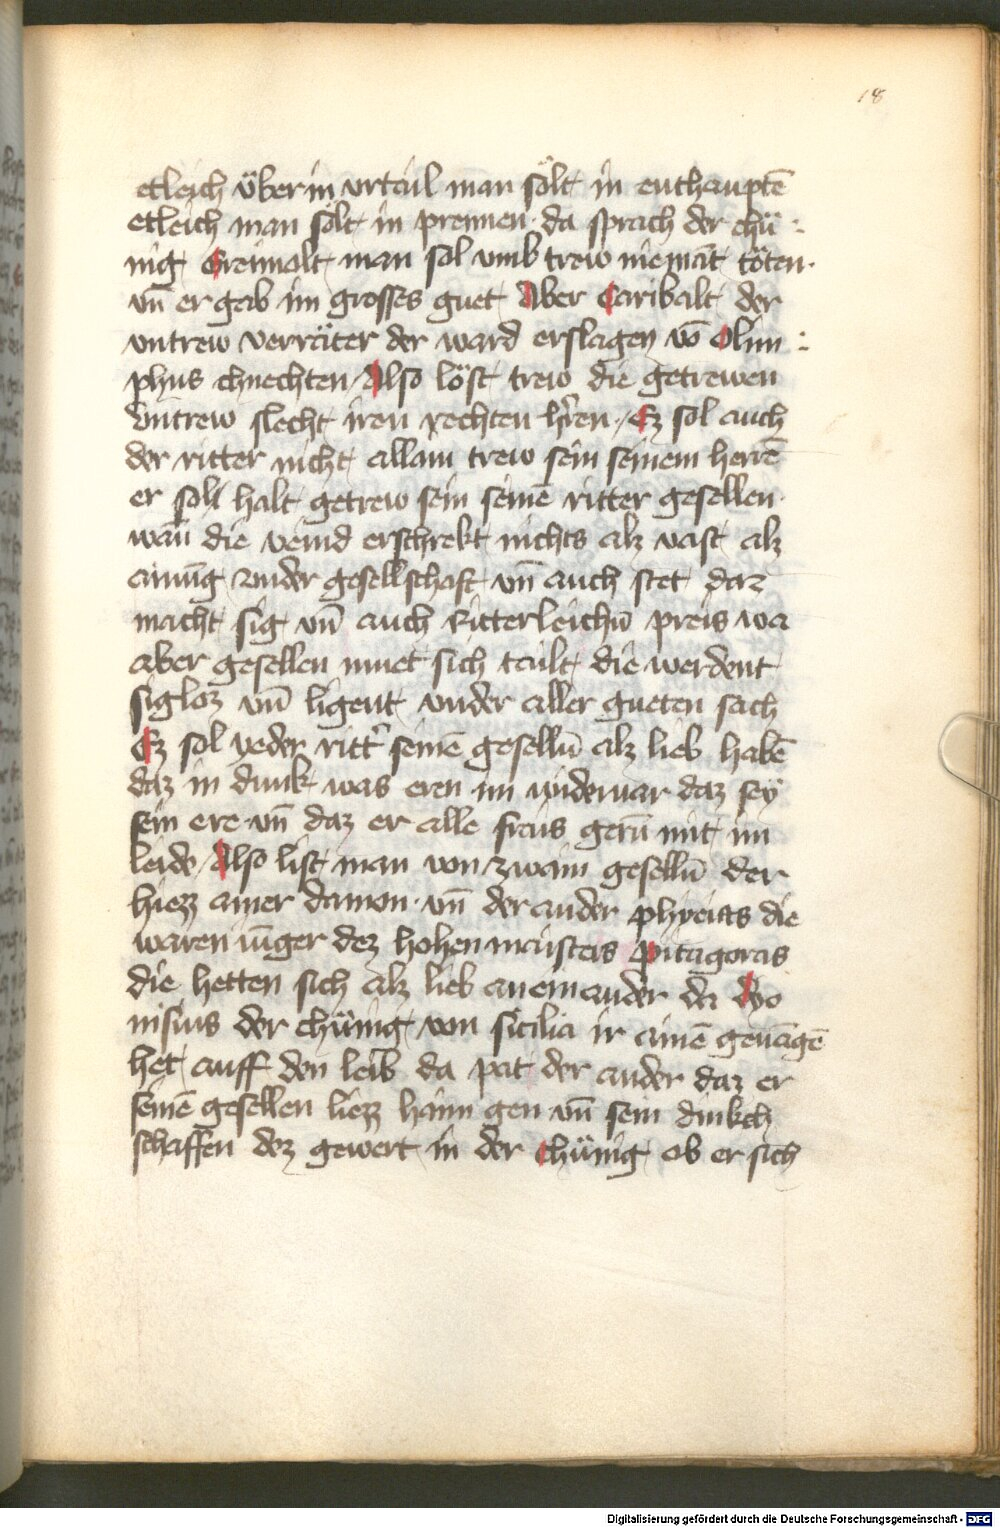 18
etleich über in vrtail man sölt in enthauptē
etleich man sölt in prennen · da sprach der chü :
nig Greimolt man sol vmb trew niemāt töten ·
vn̄ er gab im grosses guet Aber Garibalt der
vntrew verräter der ward erslagen vō Olim :
phus chnechten / Also löst trew die getrewen
vntrew slecht iren rechten h̄ren · / Ez sol auch
der ritter nicht allain trew sein seinem herrē
er sol halt getrew sein seinē ritter gesellen ·
wan̄ die veind erschrekt nichts alz vast alz
ainūg vnder gesellschaft vn̄ auch stet daz
macht sig vn̄ auch ritterleichn̄ preis wa
aber gesellen muet sich tailt die werdent
sigloz vn̄ ligent vnder aller gueten sach
Ez sol yeder ritt̄ seinē geselln̄ alz lieb habē
daz in dunk was eren im wideruar daz sey
sein ere vn̄ daz er alle frais gern̄ mit im
leide / Also list man von zwain geselln̄ der
hiezz ainer damon · vn̄ der ander phyeias die
waren iūger dez hohen maisters pitagoras
die hetten sich alz lieb an einander da dyo
nisius der chünig von sicilia ir ainē geuāgē
het auff den leib da pat der ander daz er
seinē gesellen liezz haim gen vn̄ sein dinkch
schaffen dez gewert in der chünig ob er sich
Digitalisierung gefördert durch die Deutsche Forschungsgemeinschaft - DFG